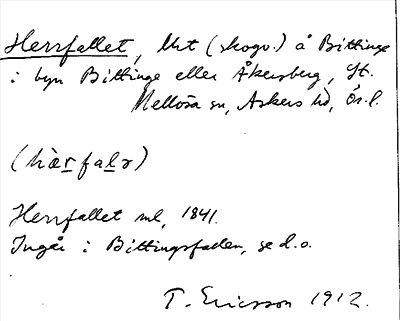 Herrfallet, Urt (skogv.) å Bittinge
i byn Bittinge eller Åkersberg, St.
Mellösa sn, Askers hd, Ör. l.
(hæ̀rfalə)
Herrfallet ml, 1841.
Ingår i Bittingsfallen, se d.o.
T. Ericsson 1912.